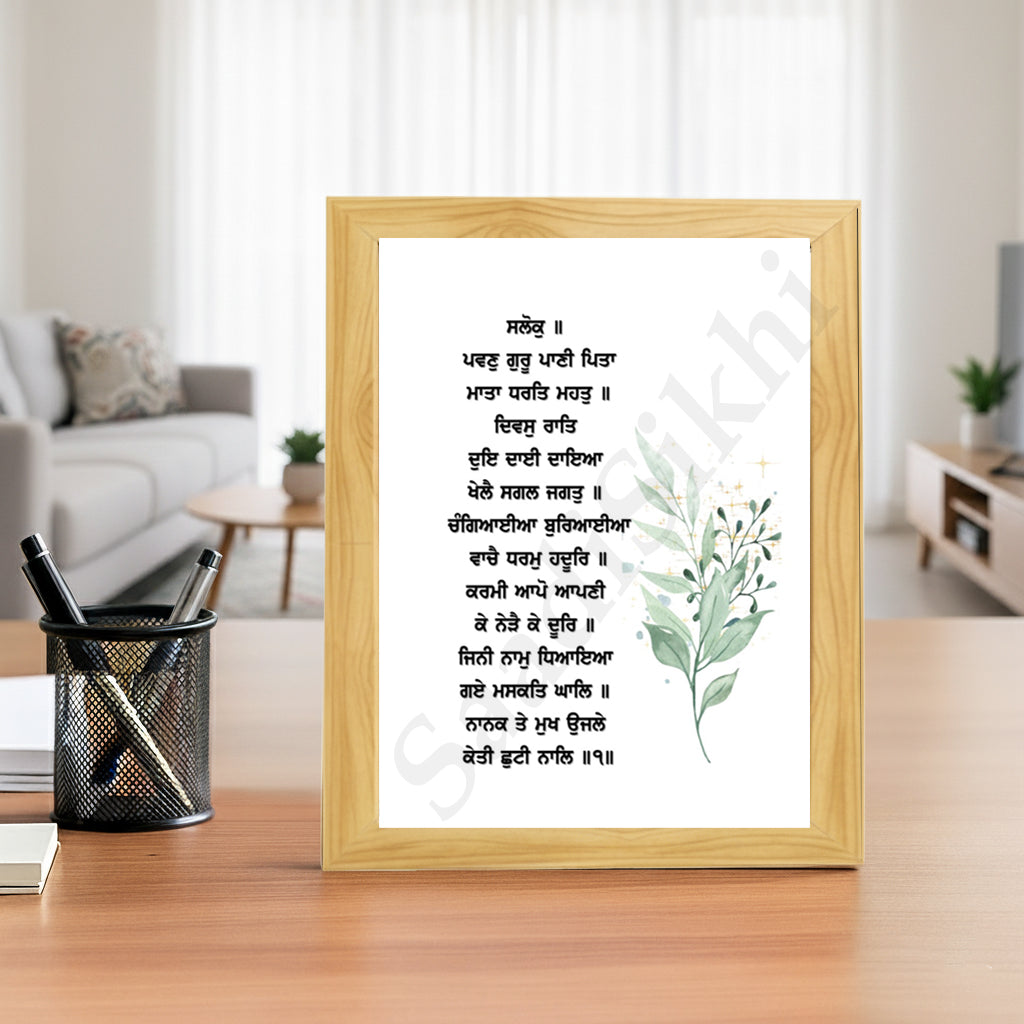 ਸਲੋਕੁ ॥
ਪਵਣੁ ਗੁਰੂ ਪਾਣੀ ਪਿਤਾ
ਮਾਤਾ ਧਰਤਿ ਮਹਤੁ ॥
ਦਿਵਸੁ ਰਾਤਿ
ਦੁਇ ਦਾਈ ਦਾਇਆ
ਖੇਲੈ ਸਗਲ ਜਗਤੁ ॥
ਚੰਗਿਆਈਆ ਬੁਰਿਆਈਆ
ਵਾਚੈ ਧਰਮੁ ਹਦੂਰਿ ॥
ਕਰਮੀ ਆਪੋ ਆਪਣੀ
ਕੇ ਨੇੜੈ ਕੇ ਦੂਰਿ ॥
ਜਿਨੀ ਨਾਮੁ ਧਿਆਇਆ
ਗਏ ਮਸਕਤਿ ਘਾਲਿ ॥
ਨਾਨਕ ਤੇ ਮੁਖ ਉਜਲੇ
ਕੇਤੀ ਛੁਟੀ ਨਾਲਿ ॥੧॥
SaadiSikhi